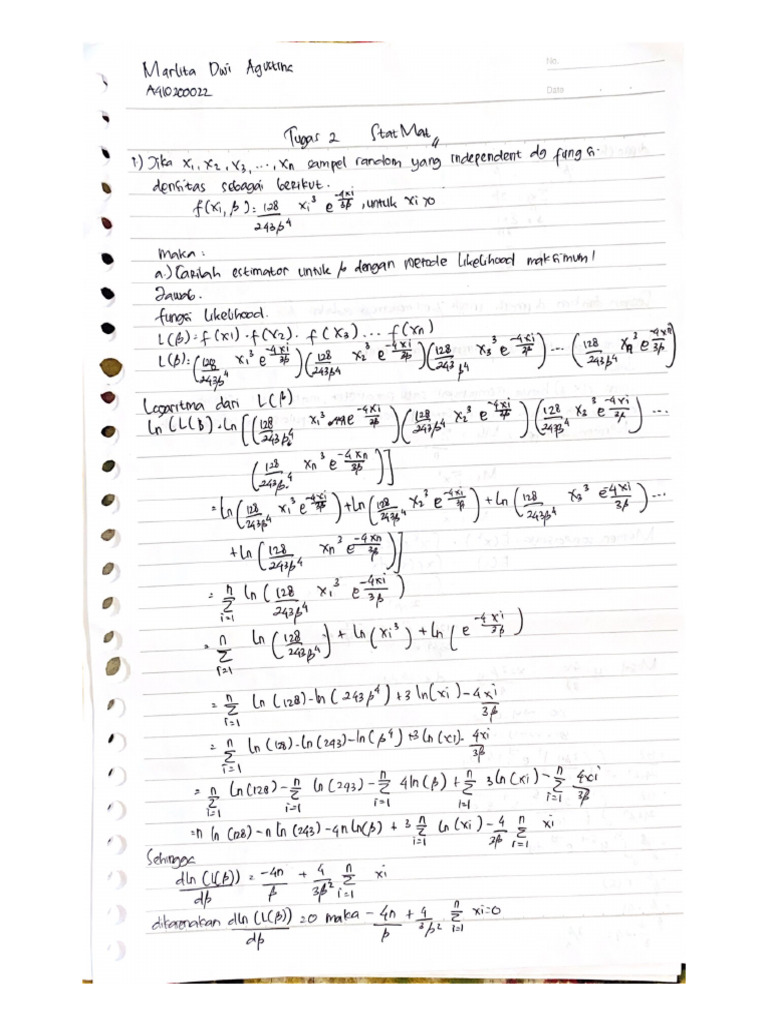 Marlita Dwi Agustina
A410200022
No.
Date
Tugas 2 Stat Mat
1.) Jika x₁, x₂, x₃, ..., xn sampel random yang independent dg fungsi
densitas sebagai berikut.
f(xi, β) = 128/243β⁴ xi³ e^(-4xi/3β), untuk xi>0
maka :
a.) Carilah estimator untuk β dengan metode likelihood maksimum!
Jawab.
fungsi likelihood.
L(β) = f(x1) · f(x2) · f(x3) ... f(xn)
L(β) = (128/243β⁴ x₁³ e^(-4xi/3β)) (128/243β⁴ x₂³ e^(-4xi/3β)) (128/243β⁴ x₃³ e^(-4xi/3β)) ... (128/243β⁴ xn³ e^(-4xn/3β))
Logaritma dari L(β)
ln (L(β) = ln [(128/243β⁴ x₁³ e^(-4xi/3β)) (128/243β⁴ x₂³ e^(-4xi/3β)) (128/243β⁴ x₃³ e^(-4xi/3β)) ...
(128/243β⁴ xn³ e^(-4xn/3β))]
= ln (128/243β⁴ x₁³ e^(-4xi/3β)) + ln (128/243β⁴ x₂³ e^(-4xi/3β)) + ln (128/243β⁴ x₃³ e^(-4xi/3β)) ...
+ ln (128/243β⁴ xn³ e^(-4xn/3β))]
= n Σ i=1 ln (128/243β⁴ xi³ e^(-4xi/3β))
= n Σ i=1 ln (128/243β⁴) + ln (xi³) + ln (e^(-4xi/3β))
= n Σ i=1 ln (128) - ln (243β⁴) + 3 ln (xi) - 4xi/3β
= n Σ i=1 ln (128) - ln (243) - ln (β⁴) + 3 ln (xi) - 4xi/3β
= n Σ i=1 ln (128) - n Σ i=1 ln (243) - n Σ i=1 4 ln (β) + n Σ i=1 3 ln (xi) - n Σ i=1 4xi/3β
= n ln (128) - n ln (243) - 4n ln(β) + 3 n Σ i=1 ln (xi) - 4/3β n Σ i=1 xi
Sehingga
dln (L(β))/dβ = -4n/β + 4/3β² n Σ i=1 xi
dikarenakan dln (L(β))/dβ = 0 maka -4n/β + 4/3β² n Σ i=1 xi = 0